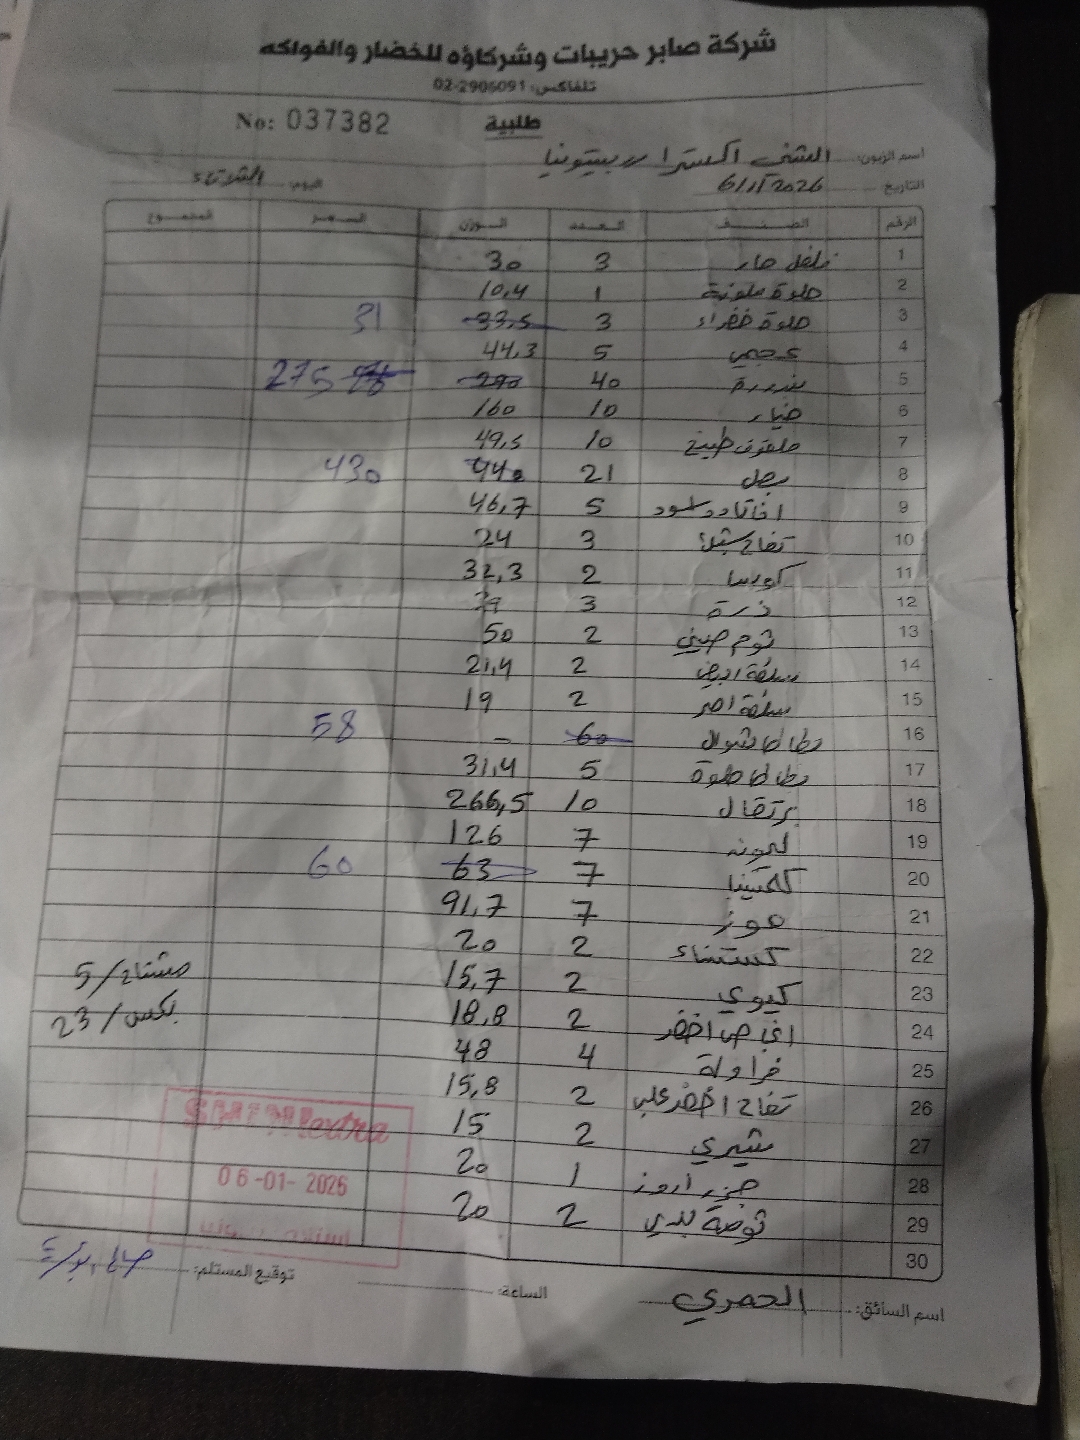 شركة صابر حريبات وشركاؤه للخضار والفواكه
تلفاكس: 02-2905091
No: 037382 طلبية
اسم الزبون: الشني اكسترا بيتونيا
التاريخ 6/1/2026 اليوم: الثلاثاء
الرقم الصنف العدد الوزن السعر المجموع
1 فلفل حار 3 30
2 حلوة ملونة 1 10,4
3 حلوة خضراء 3 33,5 31
4 عجمي 5 44,3
5 بندورة 40 290 275
6 خيار 10 160
7 ملفوف طبيخ 10 49,5
8 بصل 21 440 430
9 افاكادو اسود 5 46,7
10 تفاح 3 24
11 كوسا 2 32,3
12 ذرة 3
13 ثوم صيني 2 50
14 ابيض 2 21,4
15 احمر 2 19
16 بطاطا شوال 60 - 58
17 بطاطا حلوة 5 31,4
18 برتقال 10 266,5
19 ليمونه 7 126
20 كلمنتينا 7 63 60
21 موز 7 91,7
22 كستناء 2 20
23 كيوي 2 15,7 مشتاح / 5
24 اجاص اخضر 2 18,8 بكس / 23
25 فراولة 4 48
26 تفاح اخضر علب 2 15,8
27 شيري 2 15
28 جزر 1 20
29 بلدي 2 20
30
SHINIextra
06-01-2026
اسم السائق: الحمري الساعة: توقيع المستلم: